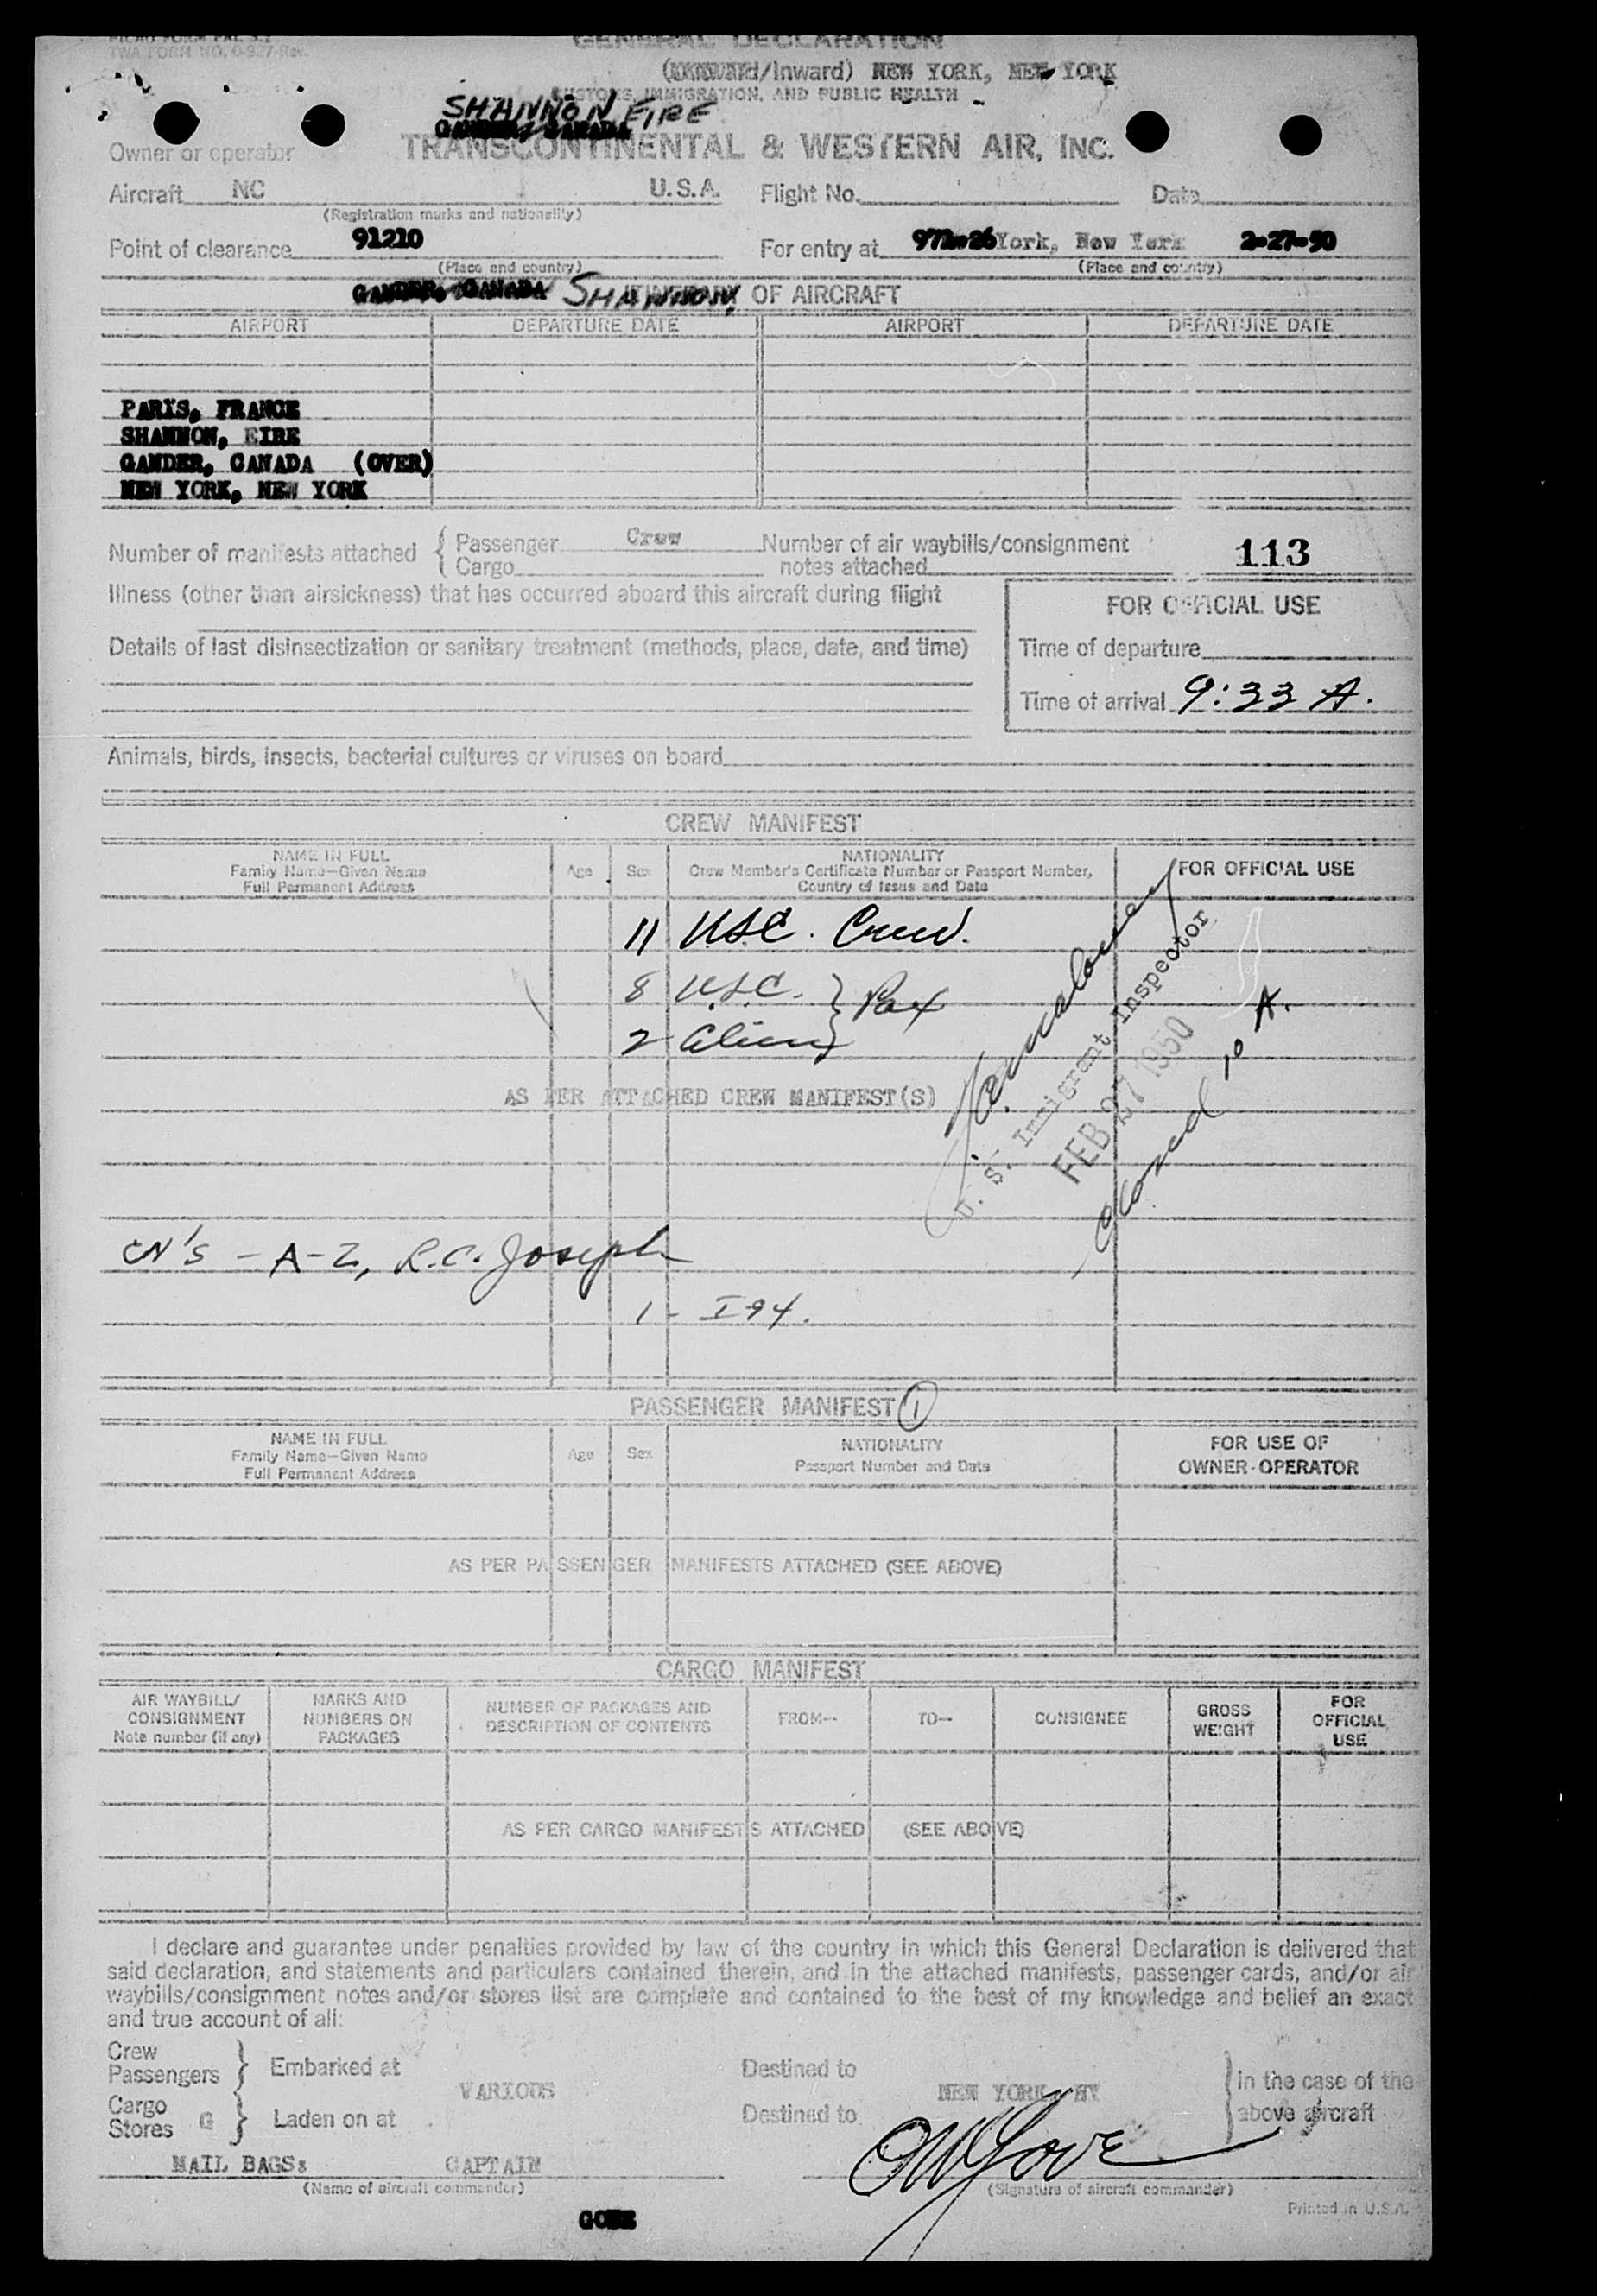 TWA FORM NO. 0-927-Rev.
GENERAL DECLARATION
(Outward/Inward) NEW YORK, NEW YORK
CUSTOMS, IMMIGRATION, AND PUBLIC HEALTH
SHANNON EIRE
GANDER, CANADA
Owner or operator TRANSCONTINENTAL & WESTERN AIR, INC.
Aircraft NC U.S.A. Flight No. Date
(Registration marks and nationality)
Point of clearance 91210 For entry at York, New York 2-27-50
(Place and country) (Place and country)
GANDER, CANADA SHANNON OF AIRCRAFT
AIRPORT DEPARTURE DATE AIRPORT DEPARTURE DATE
PARIS, FRANCE
SHANNON, EIRE
GANDER, CANADA (OVER)
NEW YORK, NEW YORK
Number of manifests attached { Passenger Crew Number of air waybills/consignment 113
Cargo notes attached
Illness (other than airsickness) that has occurred aboard this aircraft during flight
FOR OFFICIAL USE
Details of last disinsectization or sanitary treatment (methods, place, date, and time)
Time of departure
Time of arrival 9:33 A.
Animals, birds, insects, bacterial cultures or viruses on board
CREW MANIFEST
NAME IN FULL
Family Name—Given Name
Full Permanent Address
Age Sex
NATIONALITY
Crew Member's Certificate Number or Passport Number,
Country of Issue and Date
FOR OFFICIAL USE
11 USC. Crew.
8 U.S.C. } Pax
2 Aliens
U. S. Immigrant Inspector
FEB 27 1950
10 A.
AS PER ATTACHED CREW MANIFEST(S)
CN's - A-Z, R.C. Joseph
1 - I 94.
PASSENGER MANIFEST 1
NAME IN FULL
Family Name—Given Name
Full Permanent Address
Age Sex
NATIONALITY
Passport Number and Date
FOR USE OF
OWNER-OPERATOR
AS PER PASSENGER MANIFESTS ATTACHED (SEE ABOVE)
CARGO MANIFEST
AIR WAYBILL/
CONSIGNMENT
Note number (if any)
MARKS AND
NUMBERS ON
PACKAGES
NUMBER OF PACKAGES AND
DESCRIPTION OF CONTENTS
FROM— TO— CONSIGNEE
GROSS
WEIGHT
FOR
OFFICIAL
USE
AS PER CARGO MANIFESTS ATTACHED (SEE ABOVE)
I declare and guarantee under penalties provided by law of the country in which this General Declaration is delivered that
said declaration, and statements and particulars contained therein, and in the attached manifests, passenger cards, and/or air
waybills/consignment notes and/or stores list are complete and contained to the best of my knowledge and belief an exact
and true account of all:
Crew
Passengers } Embarked at VARIOUS Destined to NEW YORK NY } in the case of the
Cargo
Stores G } Laden on at Destined to above aircraft
MAIL BAGS: CAPTAIN
(Name of aircraft commander) (Signature of aircraft commander)
Printed in U.S.A.